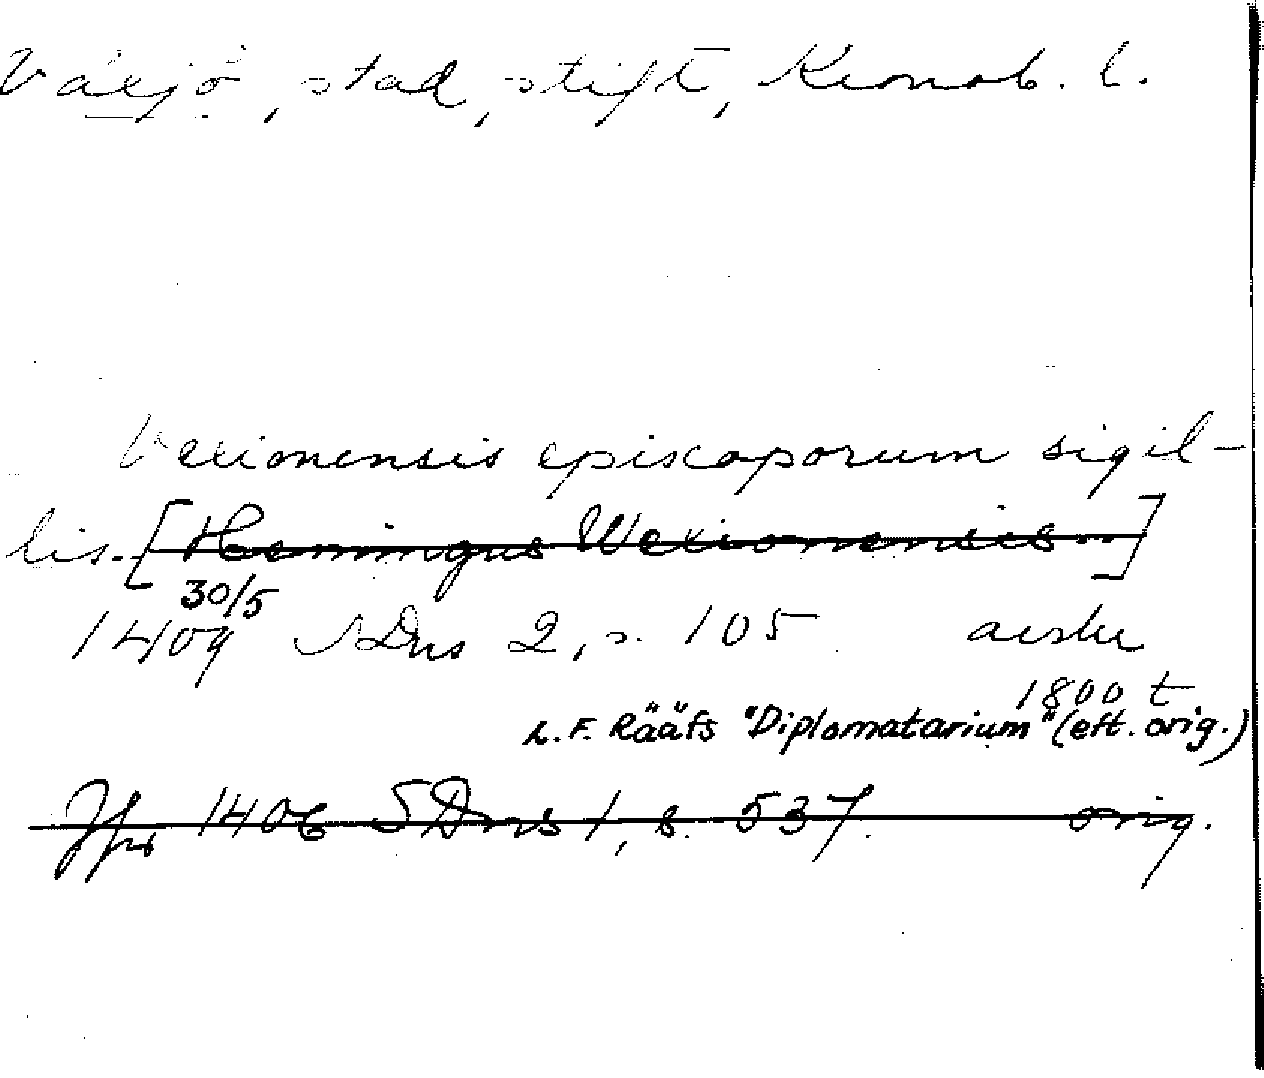 Växjö, stad, stift, Kronob. l.
Vexionensis episcoporum sigil-
lis. [Hemingus Wexionensis...]
30/5
1409 SDns 2, s. 105 avskr
1800 t
L.F. Rääfs "Diplomatarium" (eft. orig.)
Jfr 1406 SDns 1, s. 537. orig.